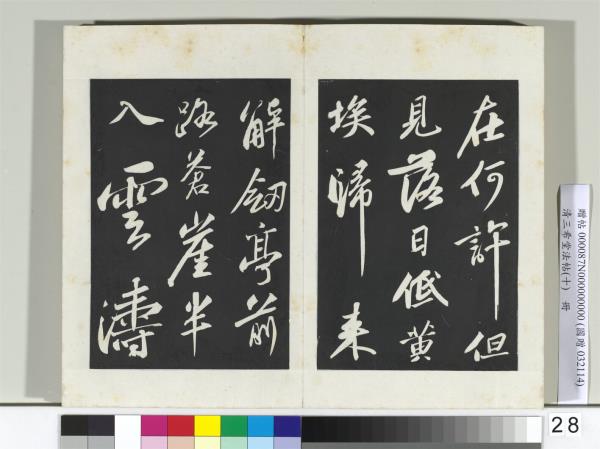 在何許但
見落日低黄
埃歸来
解劔亭前
路蒼崖半
入雲濤
贈帖 000087N000000000 (圖贈 032114)
清三希堂法帖(十) 冊
28